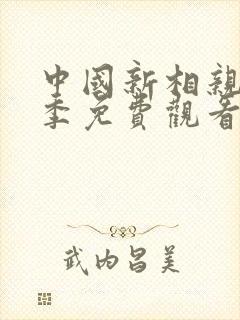 中國新相親
季免費觀看
武内昌美